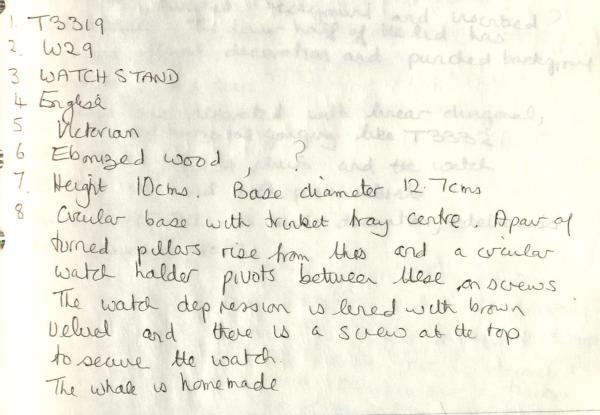 1. T3319
2. W29
3 WATCH STAND
4 English
5 Victorian
6 Ebonized wood, ?
7. Height 10cms. Base diameter 12.7cms
8 Circular base with trinket tray centre A pair of
turned pillars rise from this and a circular
watch holder pivots between these on screws
The watch depression is lined with brown
velvet and there is a screw at the top
to secure the watch.
The whole is homemade